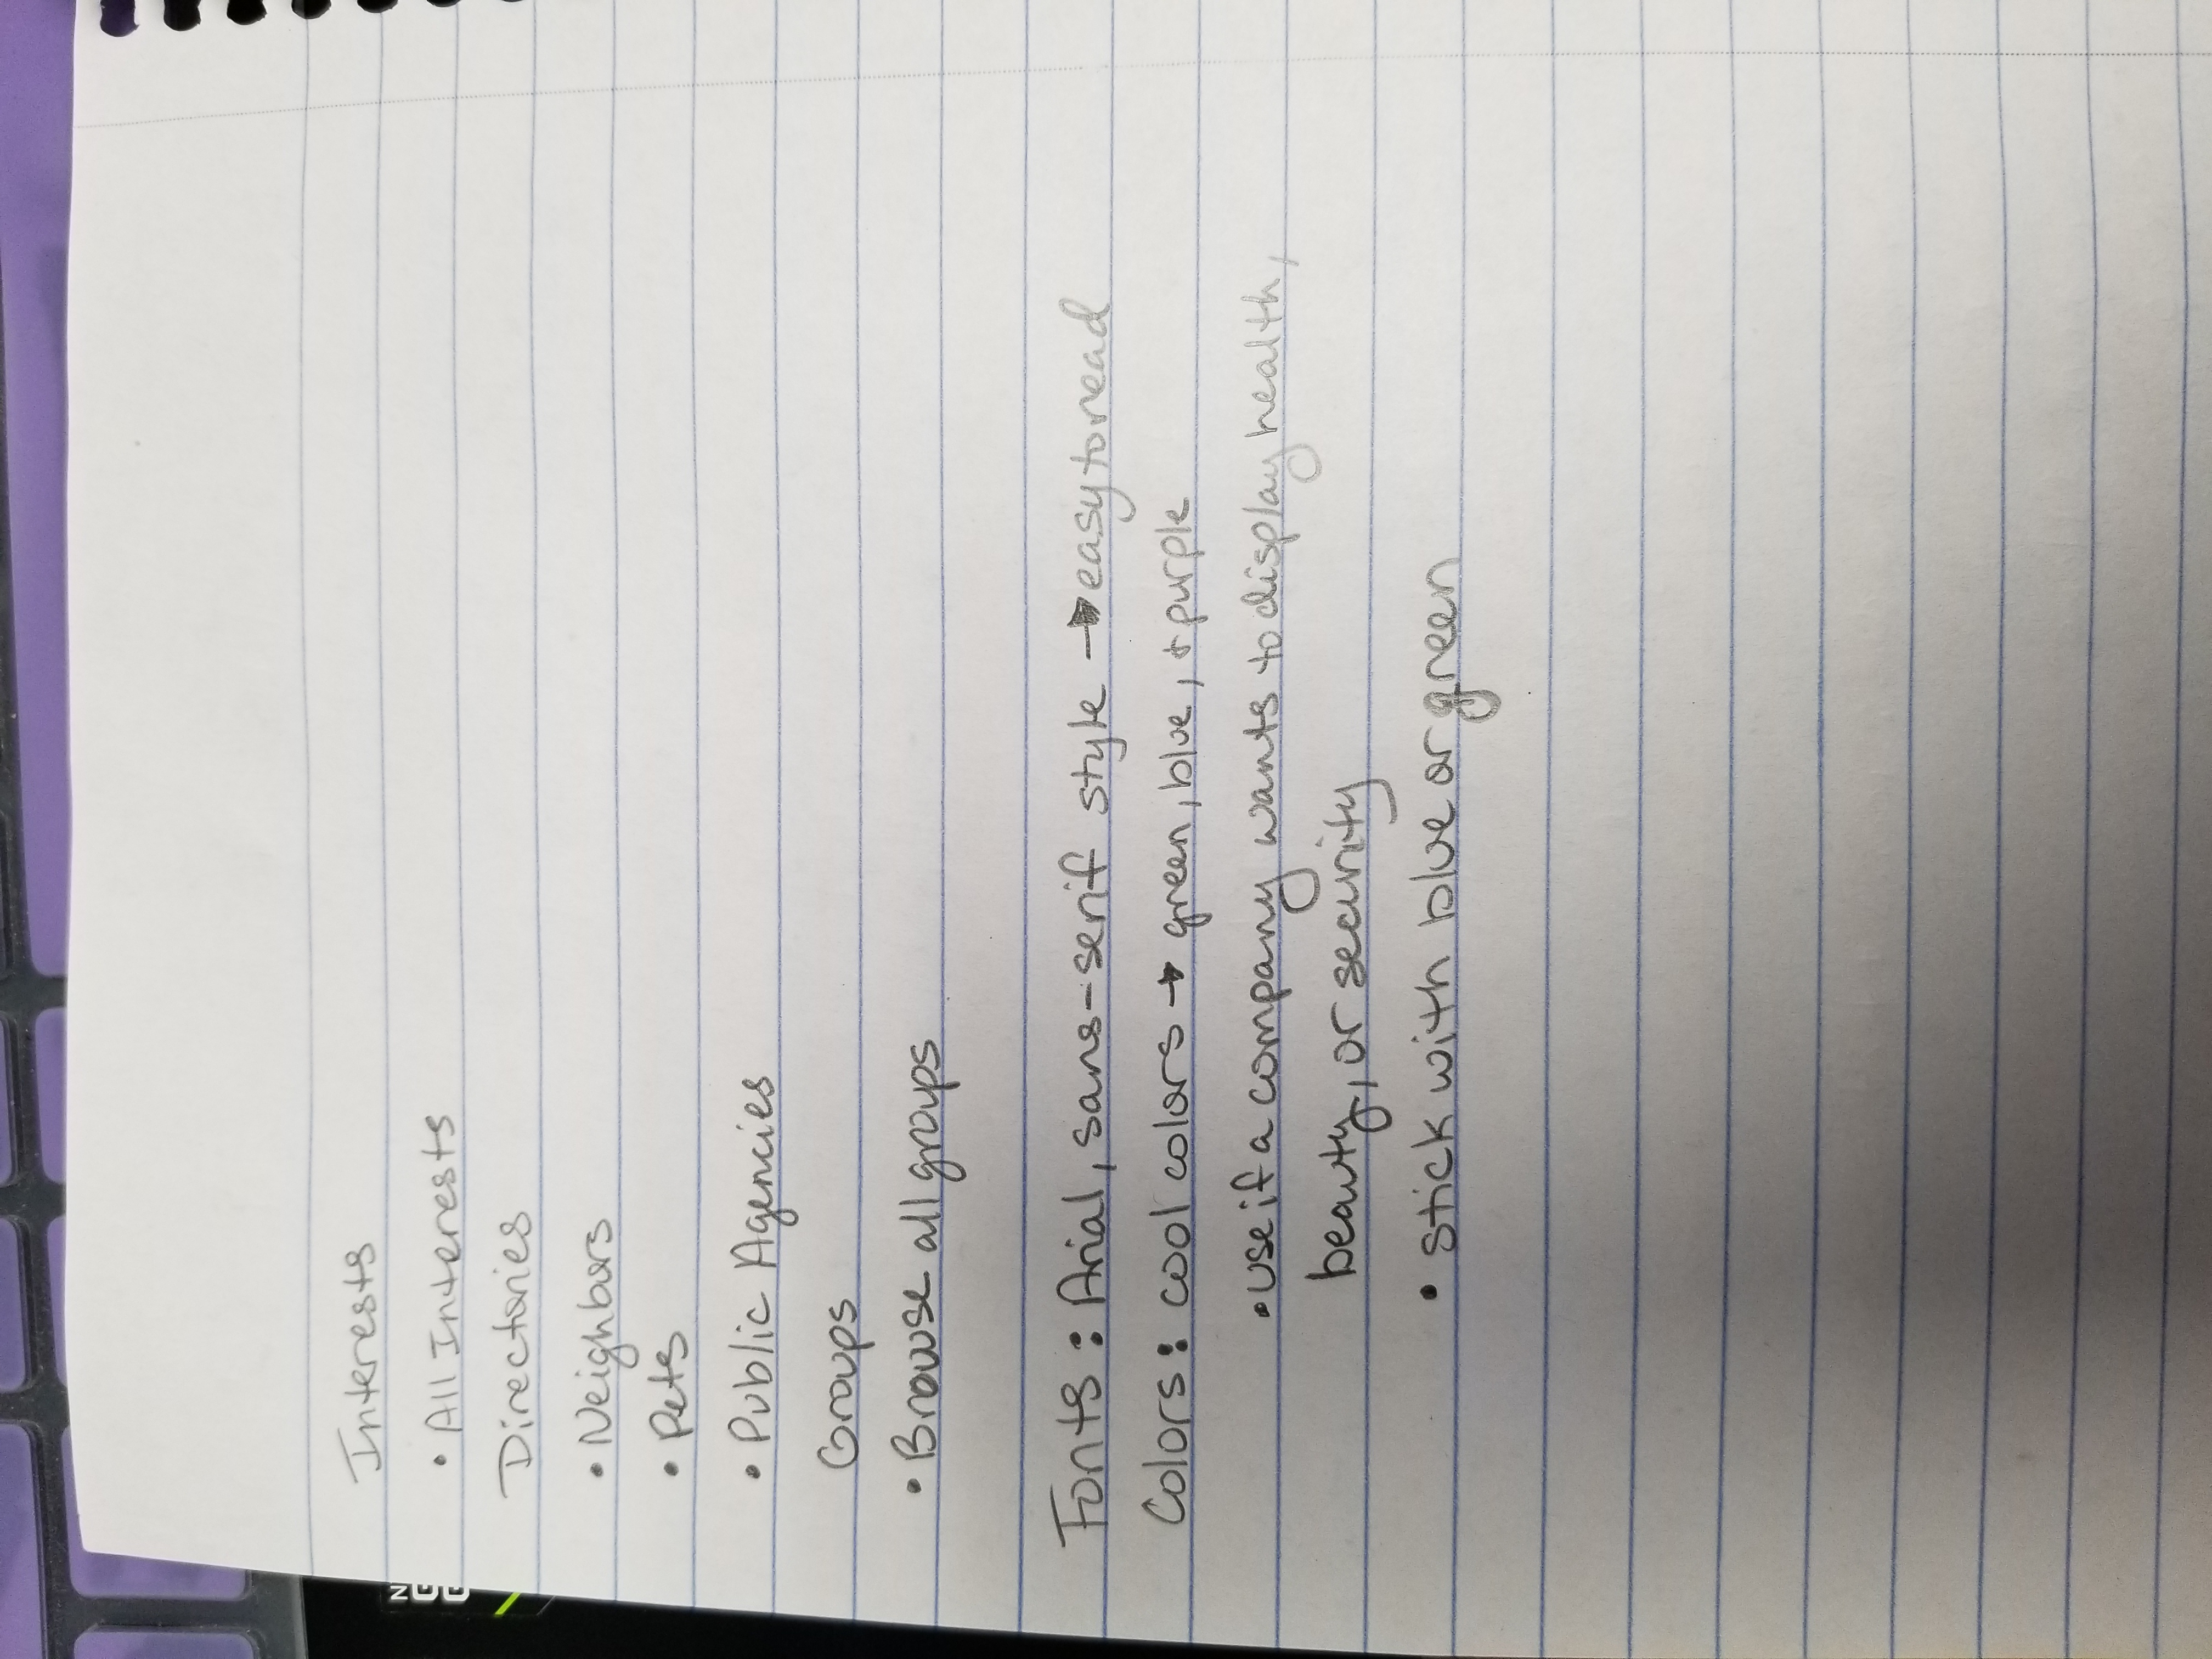 Interests
• All Interests
Directories
• Neighbors
• Pets
• Public Agencies
Groups
• Browse all groups
Fonts: Arial, sans-serif style → easy to read
Colors: cool colors → green, blue, + purple
• use if a company wants to display health,
beauty, or security
• stick with blue or green